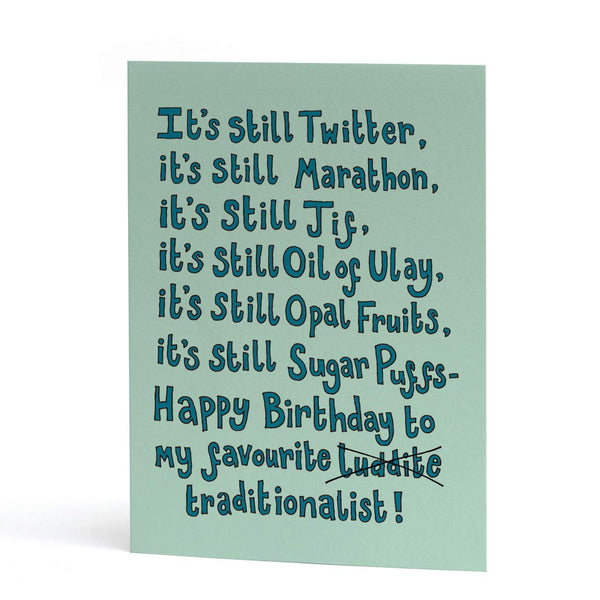 It's still Twitter,
it's still Marathon,
it's still Jif,
it's still Oil of Ulay,
it's still Opal Fruits,
it's still Sugar Puffs-
Happy Birthday to
my favourite luddite
traditionalist!